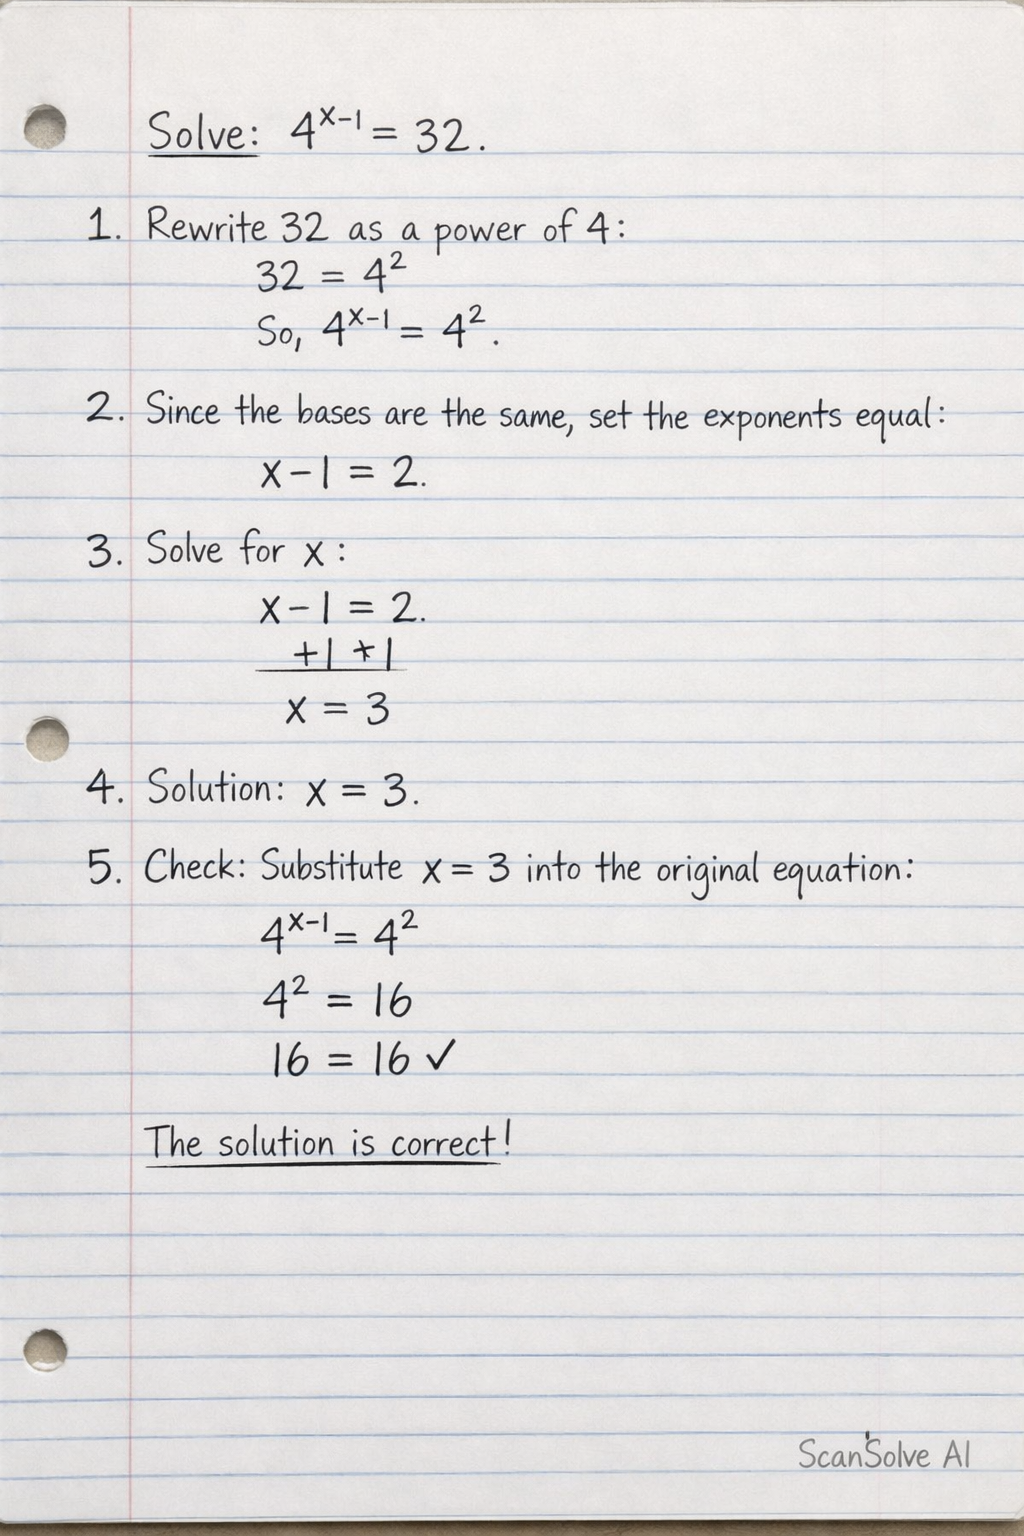 Solve: 4^{x-1} = 32.
1. Rewrite 32 as a power of 4:
32 = 4^2
So, 4^{x-1} = 4^2.
2. Since the bases are the same, set the exponents equal:
x-1 = 2.
3. Solve for x:
x-1 = 2.
+1 +1
x = 3
4. Solution: x = 3.
5. Check: Substitute x = 3 into the original equation:
4^{x-1} = 4^2
4^2 = 16
16 = 16 ✓
The solution is correct!
ScanSolve AI